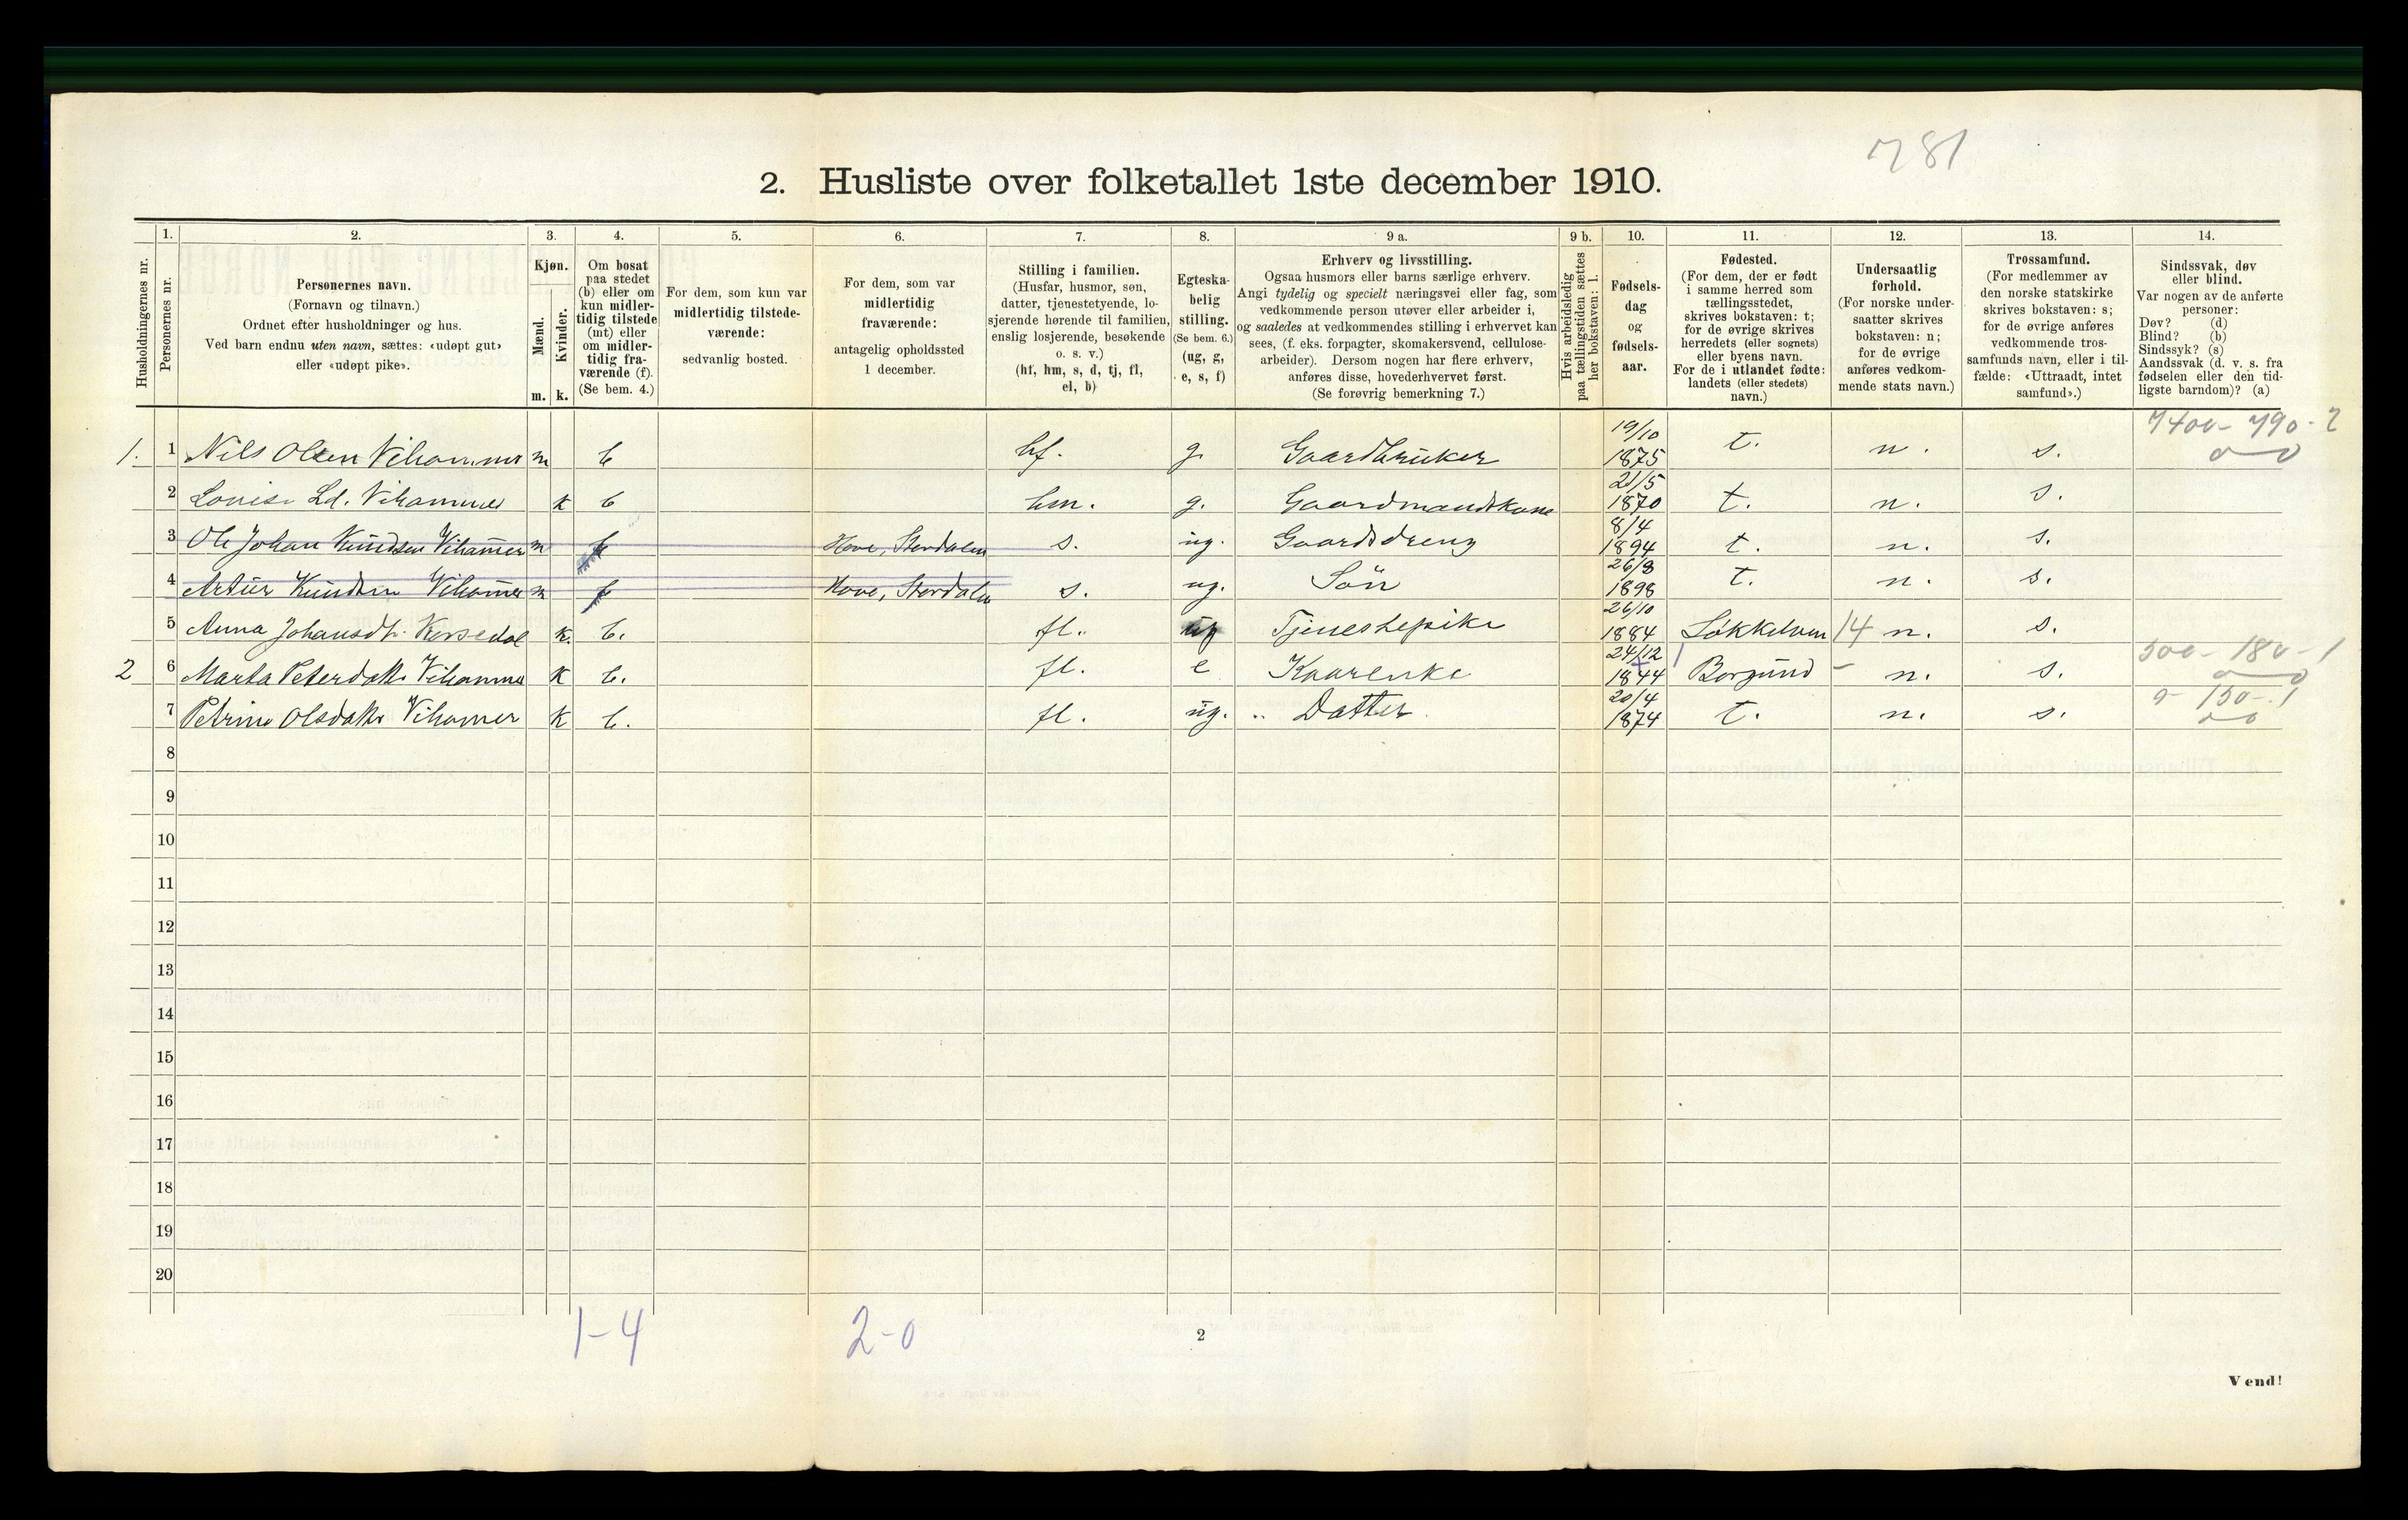 781
2. Husliste over folketallet 1ste december 1910.
1. 2. 3. 4. 5. 6. 7. 8. 9 a. 9 b. 10. 11. 12. 13. 14.
Husholdningernes nr.
Personernes nr.
Personernes navn.
(Fornavn og tilnavn.)
Ordnet efter husholdninger og hus.
Ved barn endnu uten navn, sættes: «udøpt gut»
eller «udøpt pike».
Kjøn.
Mænd.
Kvinder.
m. k.
Om bosat
paa stedet
(b) eller om
kun midler-
tidig tilstede
(mt) eller
om midler-
tidig fra-
værende (f).
(Se bem. 4.)
For dem, som kun var
midlertidig tilstede-
værende:
sedvanlig bosted.
For dem, som var
midlertidig
fraværende:
antagelig opholdssted
1 december.
Stilling i familien.
(Husfar, husmor, søn,
datter, tjenestetyende, lo-
sjerende hørende til familien,
enslig losjerende, besøkende
o. s. v.)
(hf, hm, s, d, tj, fl,
el, b)
Egteska-
belig
stilling.
(Se bem. 6.)
(ug, g,
e, s, f)
Erhverv og livsstilling.
Ogsaa husmors eller barns særlige erhverv.
Angi tydelig og specielt næringsvei eller fag, som
vedkommende person utøver eller arbeider i,
og saaledes at vedkommendes stilling i erhvervet kan
sees, (f. eks. forpagter, skomakersvend, cellulose-
arbeider). Dersom nogen har flere erhverv,
anføres disse, hovederhvervet først.
(Se forøvrig bemerkning 7.)
Hvis arbeidsledig
paa tællingstiden sættes
her bokstaven: l.
Fødsels-
dag
og
fødsels-
aar.
Fødested.
(For dem, der er født
i samme herred som
tællingsstedet,
skrives bokstaven: t;
for de øvrige skrives
herredets (eller sognets)
eller byens navn.
For de i utlandet fødte:
landets (eller stedets)
navn.)
Undersaatlig
forhold.
(For norske under-
saatter skrives
bokstaven: n;
for de øvrige
anføres vedkom-
mende stats navn.)
Trossamfund.
(For medlemmer av
den norske statskirke
skrives bokstaven: s;
for de øvrige anføres
vedkommende tros-
samfunds navn, eller i til-
fælde: «Uttraadt, intet
samfund».)
Sindssvak, døv
eller blind.
Var nogen av de anførte
personer:
Døv? (d)
Blind? (b)
Sindssyk? (s)
Aandssvak (d. v. s. fra
fødselen eller den tid-
ligste barndom)? (a)
1. 1 Nils Olsen Vihammer m b hf. g. Gaardbruker 19/10 1875 t. n. s. 7400- 790-2
2 Louise Ld. Vihammer k b hm. g. Gaardmandskone 21/5 1870 t. n. s.
3 Ole Johan Knudsen Vihammer m Hove, Stordalen s. ug. Gaardsdreng 8/4 1894 t. n. s.
4 Artur Knudsen Vihammer m f Hove, Stordalen s. ug. Søn 26/8 1898 t. n. s.
5 Anna Johansdt. k. b. fl. ug Tjenestepike 26/10 1884 14 n. s.
2 6 Marta Petersdatr Vihammer k b. fl. e Kaarenke 24/12 1844 Borgund - n. s. 500- 180-1
7 Petrine Olsdatr Vihammer k b. fl. ug. " Datter 20/4 1874 t. n. s. 0- 150-1
8
9
10
11
12
13
14
15
16
17
18
19
20
1-4 2-0
2
Vend!